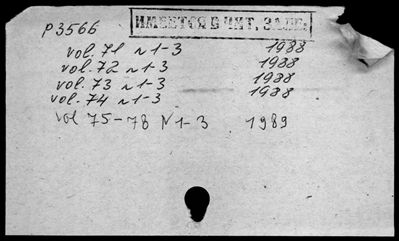 ИМЕЕТСЯ В ЧИТ. ЗАЛЕ.
P3566
vol. 71 n 1-3 1988
vol. 72 n 1-3 1988
vol. 73 n 1-3 1988
vol. 74 n 1-3 1988
vol 75-78 N 1-3 1989